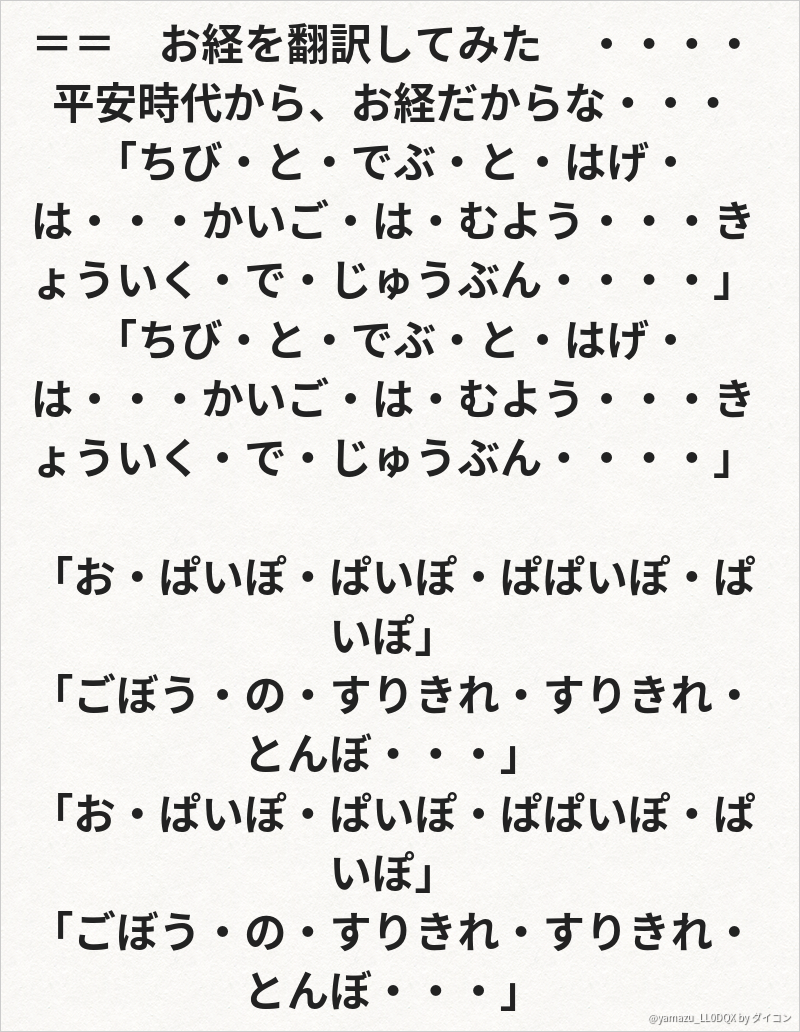 ＝＝　お経を翻訳してみた　・・・・
平安時代から、お経だからな・・・
「ちび・と・でぶ・と・はげ・
は・・・かいご・は・むよう・・・き
ょういく・で・じゅうぶん・・・・」
「ちび・と・でぶ・と・はげ・
は・・・かいご・は・むよう・・・き
ょういく・で・じゅうぶん・・・・」
「お・ぱいぽ・ぱいぽ・ぱぱいぽ・ぱ
いぽ」
「ごぼう・の・すりきれ・すりきれ・
とんぼ・・・」
「お・ぱいぽ・ぱいぽ・ぱぱいぽ・ぱ
いぽ」
「ごぼう・の・すりきれ・すりきれ・
とんぼ・・・」
@yamazu_LL0DQX by ダイコン